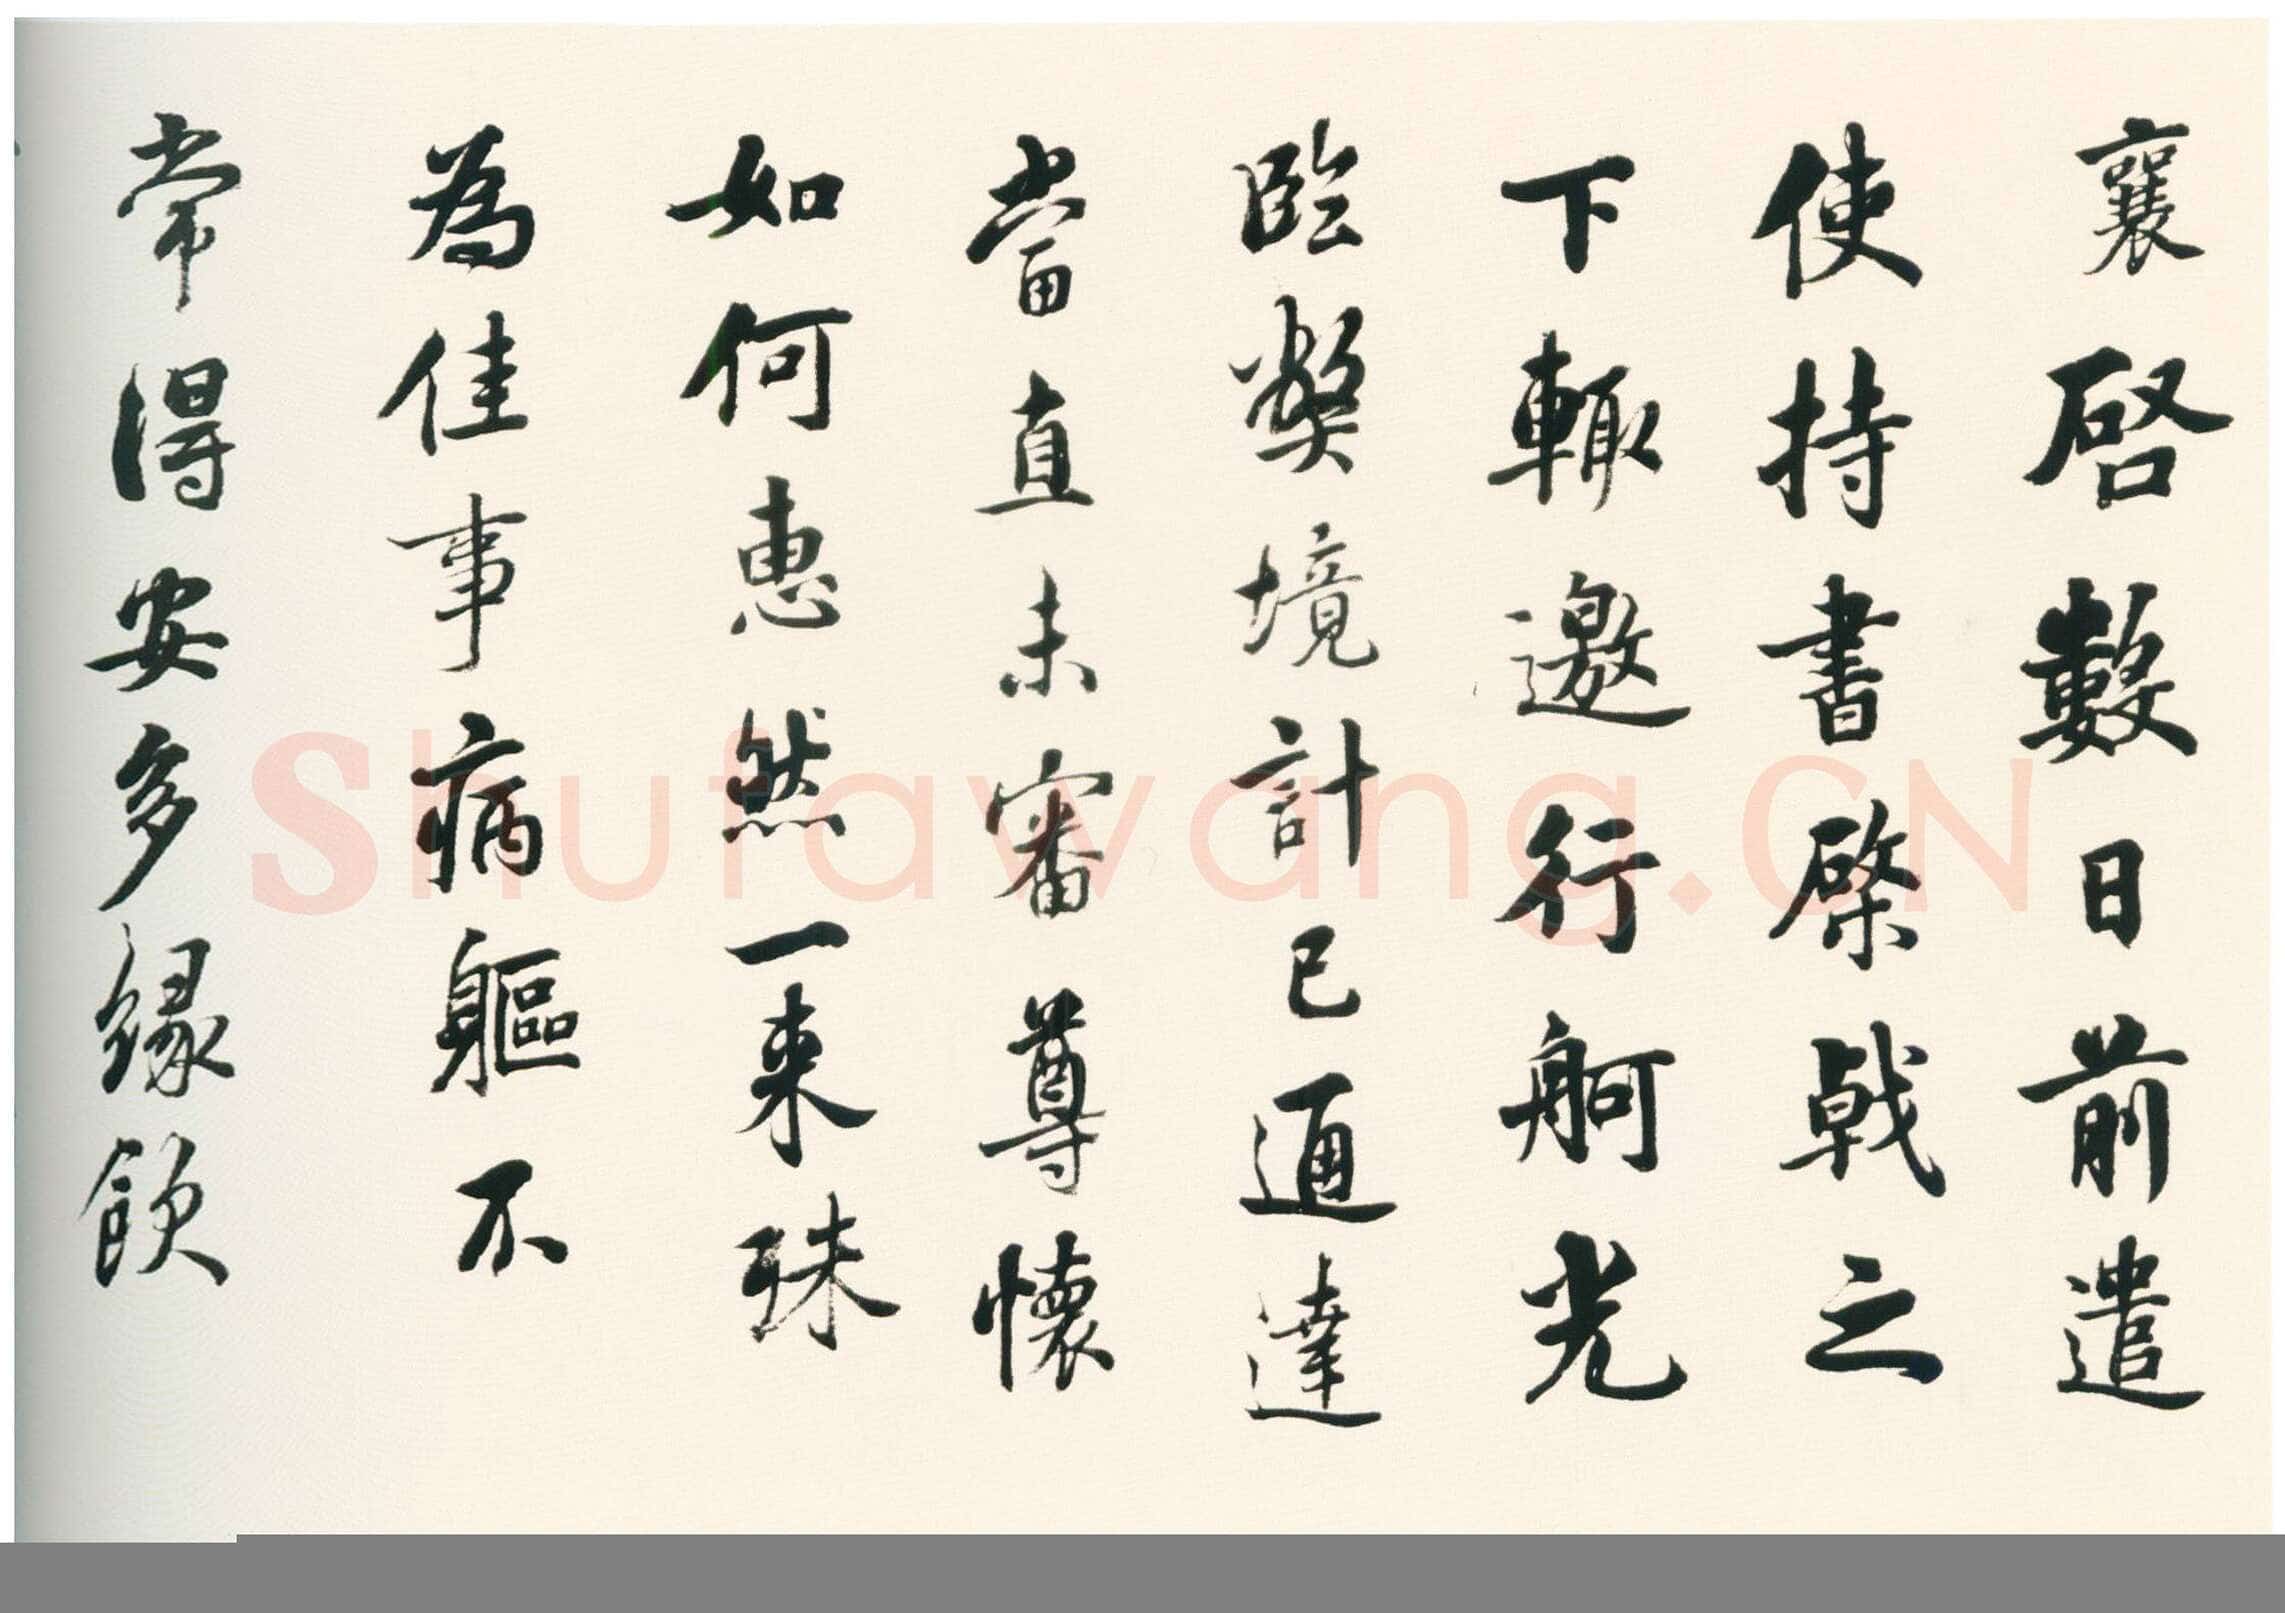 襄啓數日前遣
使持書棨戟之
下輙邀行舸光
臨獘境計已通達
當直未審尊懷
如何惠然一来殊
為佳事病軀不
常得安多縁飲
Shufawang.CN